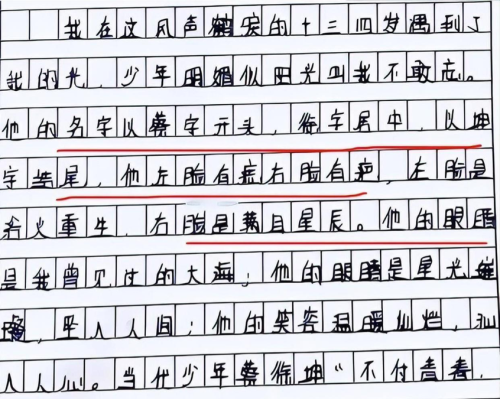 我在这风声鹤唳的十三四岁遇到了
我的光，少年明媚似阳光叫我不敢忘。
他的名字以蔡字开头，徐字居中，以坤
字结尾，他左脸有痣右脸有疤，左脸是
若火重生，右脸是满目星辰。他的眼睛
是我曾见过的大海；他的眼睛是星光璀
璨，坠入人间；他的笑容温暖灿烂，沁
人人心。当代少年蔡徐坤“不付青春，